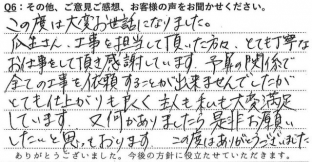 Q6：その他、ご意見ご感想、お客様の声をお聞かせください。
この度は大変お世話になりました。
瓜生さん、工事を担当して頂いた方々、とても丁寧な
お仕事をして頂き感謝しています。予算の関係で
全ての工事を依頼することが出来ませんでしたが
とても仕上がりも良く主人も私も大変満足
しています。又何かありましたら是非お願い
したいと思っております。この度はありがとうございました
ありがとうございました。今後の方針に役立たせていただきます。